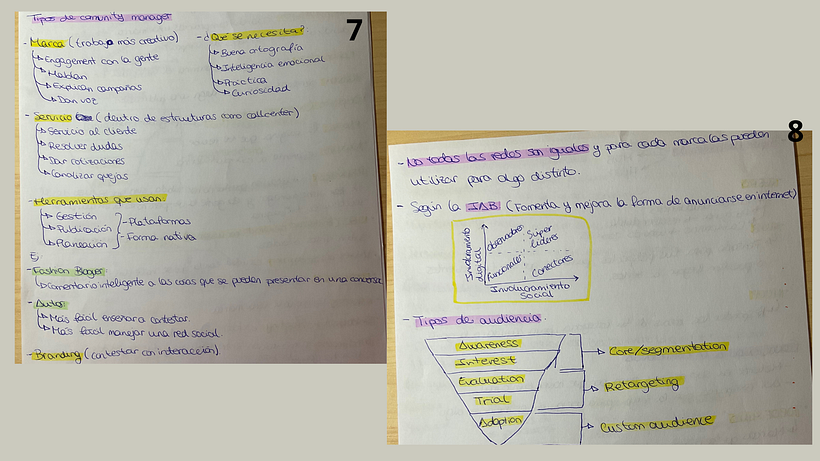 7
Tipos de comunity manager
- Marca (trabajo más creativo)
Engagement con la gente
Hablan
Explican campañas
Dan voz
- ¿Qué se necesita?
Buena ortografía
Inteligencia emocional
Práctica
Curiosidad
- Servicio (dentro de estructuras como callcenter)
Servicio al cliente
Resolver dudas
Dar cotizaciones
Canalizar quejas
- Herramientas que usan:
Gestión
Publicación
Planeación
- Plataformas
- Forma nativa
Ej
- Fashion Bloger
Comentario inteligente a las cosas que se pueden presentar en una
- Autos
Más fácil enseñar a contestar.
Más fácil manejar una red social.
- Branding (contestar con interacción)
8
- No todas las redes son iguales y para cada marca las pueden
utilizar para algo distinto.
- Según la IAB (Fomenta y mejora la forma de anunciarse en internet)
Involucramiento
digital
observadores
Super
Lideres
funcionales
Conectores
Involucramiento
Social
- Tipos de audiencia.
Awareness
Interest
Evaluation
Trial
Adoption
Core/segmentation
Retargeting
Custom audience